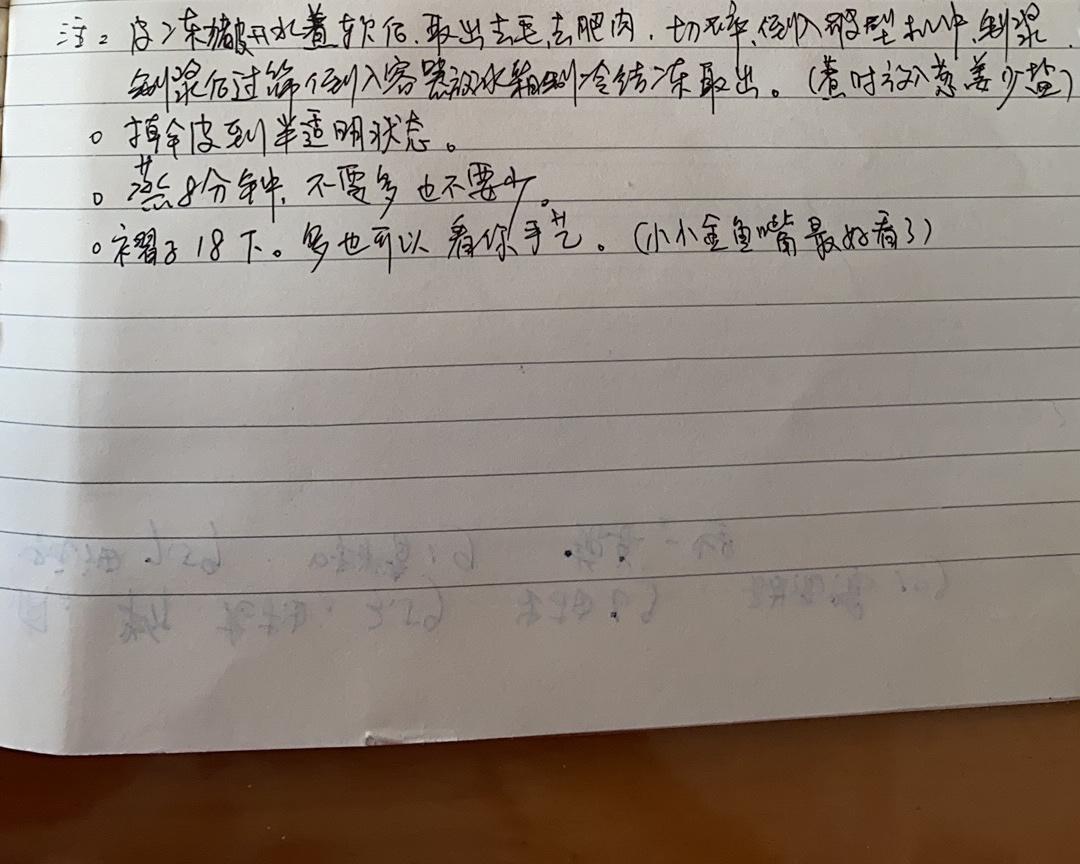 注: 皮冻被用水煮软后.取出去毛,去肥肉.切碎,倒入型机中,制浆.
制浆后过筛倒入容器放冰箱制冷结冻取出。(煮时放入葱姜少盐)
○ 擀皮到半透明状态。
○ 蒸8分钟,不要多也不要少。
○ 褶子18下。多也可以看你手艺。(小小金鱼嘴最好看了)